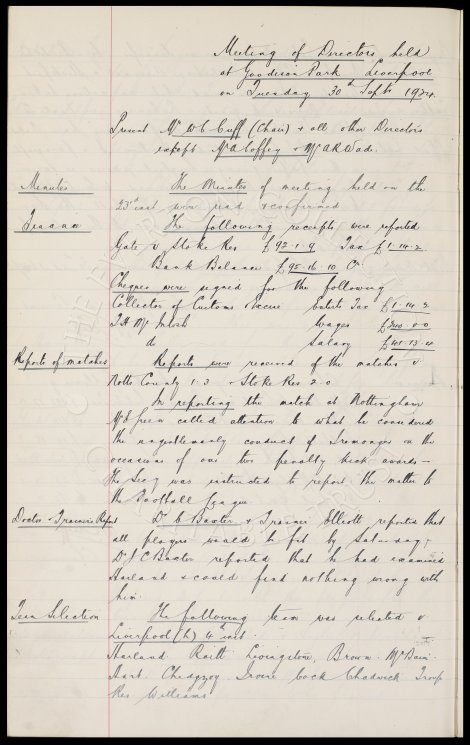 Meeting of Directors held
at Goodison Park, Liverpool
on Tuesday 30th Septr 1924.
Present Mr W C Cuff (Chair) & all other Directors
except Mr A Coffey & Mr A R Wade.
Minutes
The Minutes of meeting held on the
23rd inst were read & confirmed
Finance
The following receipts were reported
Gate v Stoke Res £92.1.9 Tax £1.14.2
Bank Balance £95.16.10 Cr
Cheques were signed for the following
Collector of Customs & Excise Ents Tax £1.14.2
T H McIntosh Wages £200.0.0
do Salary £41.13.4
Reports of matches
Reports were received of the matches v
Notts County 1.3 & Stoke Res 2.0
In reporting the match at Nottingham
Mr Green called attention to what he considered
the ungentlemanly conduct of Iremonger on the
occasions of our two penalty kick awards -
The Secy was instructed to report the matter to
the Football League.
Doctor & Trainer's Report
Dr C Baxter & Trainer Elliott reported that
all players would be fit by Saturday,
Dr J C Baxter reported that he had examined
Harland & could find nothing wrong with
him.
Team Selection
The following team was selected v
Liverpool (h) 4th inst.
Harland Raitt Livingstone, Brown McBain
Hart Chedgzoy Irvine Cock Chadwick Troup
Res Williams